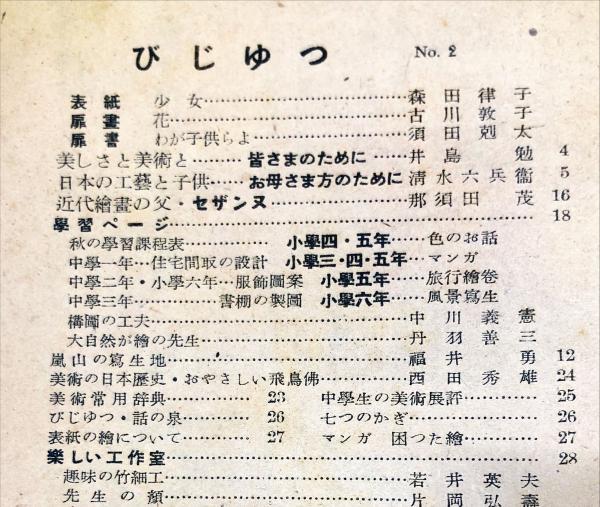 びじゆつ No. 2
表紙 少女……………………森田律子
扉畫 花……………………古川敦子
扉書 わが子供らよ……………………須田剋太
美しさと美術と………皆さまのために……井島勉 4
日本の工藝と子供……お母さま方のために清水六兵衞 5
近代繪畫の父・セザンヌ……………………那須田茂 16
學習ページ…………………………………… 18
秋の學習課程表…………小學四・五年……色のお話
中學一年…住宅間取の設計 小學三・四・五年…マンガ
中學二年・小學六年…服飾圖案 小學五年……旅行繪卷
中學三年…………書棚の製圖 小學六年……風景寫生
構圖の工夫……………………中川義憲
大自然が繪の先生……………………丹羽善三
嵐山の寫生地……………………福井勇 12
美術の日本歴史・おやさしい飛鳥佛…………西田秀雄 24
美術常用辞典……… 23 中學生の美術展評…… 25
びじゆつ・話の泉……… 26 七つのかぎ………… 26
表紙の繪について……… 27 マンガ 困つた繪…… 27
樂しい工作室…………………………………… 28
趣味の竹細工……………………若井英夫
先生の顏……………………片岡弘壽